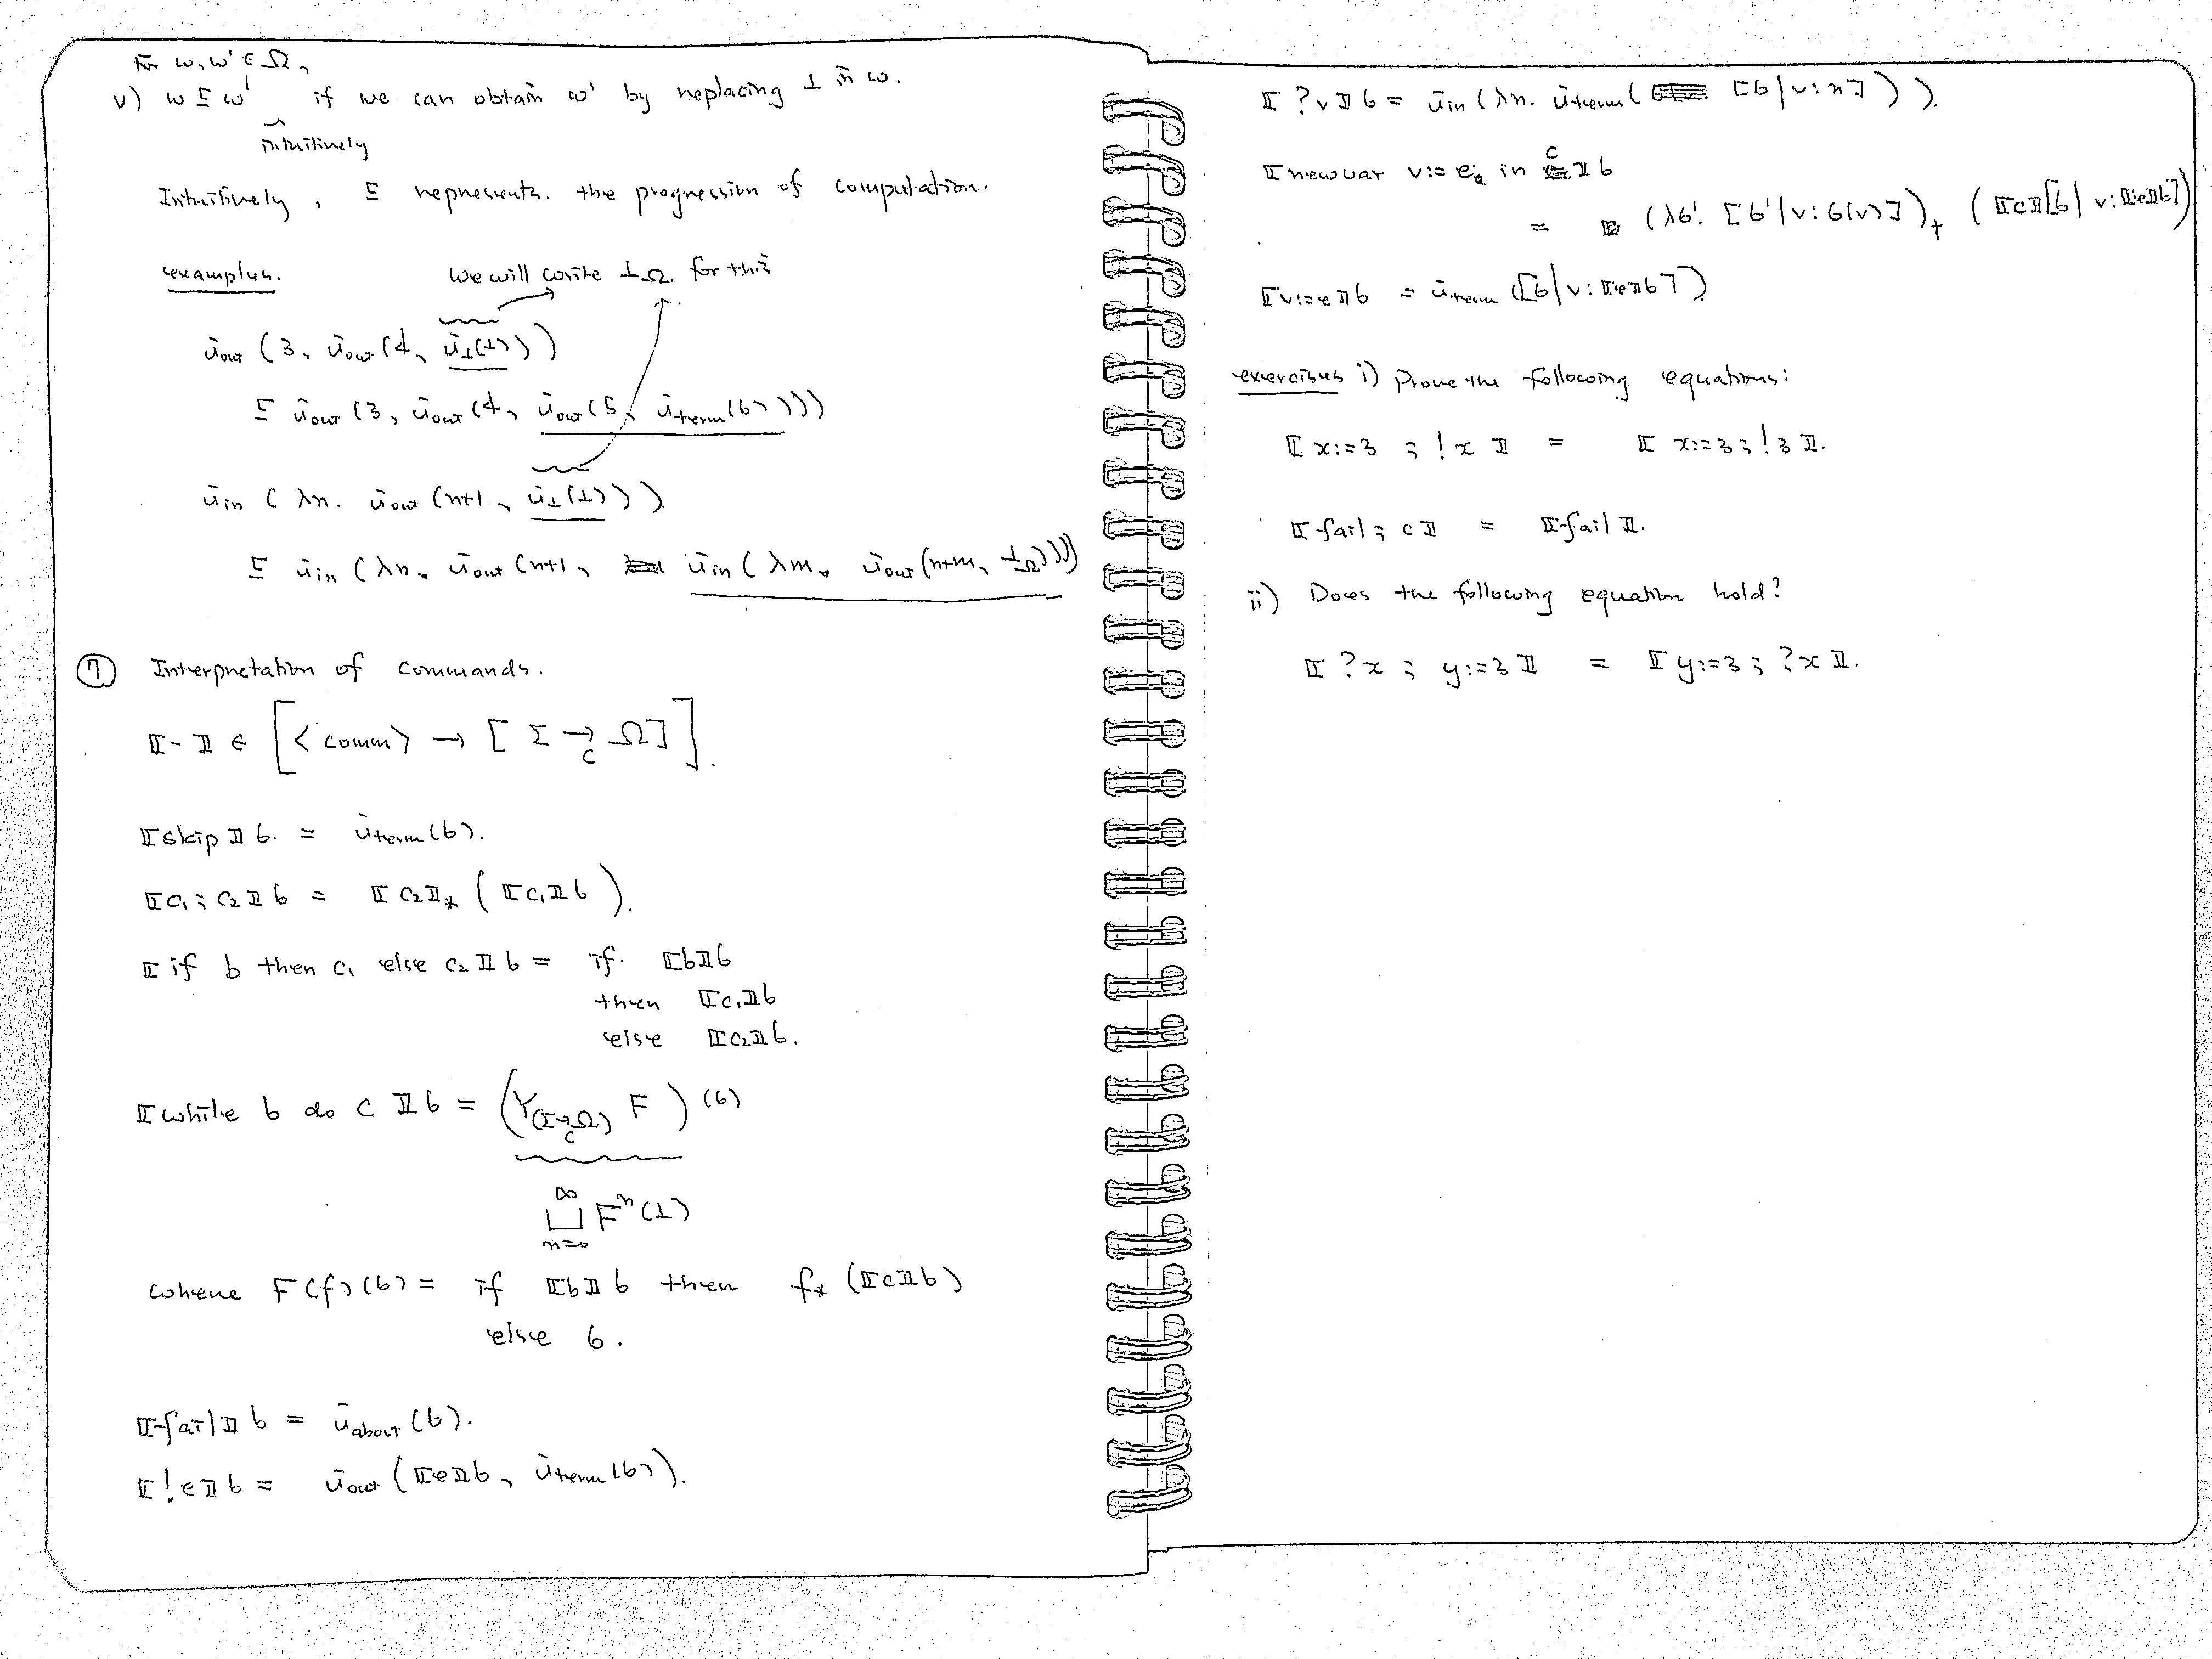 for ω, ω' ∈ Ω,
v) ω ⊑ ω' if we can obtain ω' by replacing ⊥ in ω.
intuitively
Intuitively, ⊑ represents the progression of computation.
examples. we will write ⊥_Ω for this
ū_out (3, ū_out (4, ū_⊥(⊥)))
⊑ ū_out (3, ū_out (4, ū_out (5, ū_term(σ))))
ū_in (λn. ū_out (n+1, ū_⊥(⊥)))
⊑ ū_in (λn. ū_out (n+1, ū_in (λm. ū_out (n+m, ⊥_Ω))))
⑦ Interpretation of commands.
⟦-⟧ ∈ [⟨comm⟩ → [Σ →_c Ω]].
⟦skip⟧σ = ū_term(σ).
⟦c₁; c₂⟧σ = ⟦c₂⟧_* (⟦c₁⟧σ).
⟦if b then c₁ else c₂⟧σ = if ⟦b⟧σ
then ⟦c₁⟧σ
else ⟦c₂⟧σ.
⟦while b do c⟧σ = (Y_(Σ →_c Ω) F)(σ)
⊔_{n=0}^∞ Fⁿ(⊥)
where F(f)(σ) = if ⟦b⟧σ then f_* (⟦c⟧σ)
else σ.
⟦fail⟧σ = ū_abort(σ).
⟦!e⟧σ = ū_out (⟦e⟧σ, ū_term(σ)).
⟦?v⟧σ = ū_in (λn. ū_term ([σ|v:n])).
⟦newvar v:=e in c⟧σ
= (λσ'. [σ'|v:σ(v)])_† (⟦c⟧[σ|v:⟦e⟧σ])
⟦v:=e⟧σ = ū_term ([σ|v:⟦e⟧σ])
exercises i) Prove the following equations:
⟦x:=3 ; !x⟧ = ⟦x:=3 ; !3⟧.
⟦fail; c⟧ = ⟦fail⟧.
ii) Does the following equation hold?
⟦?x ; y:=3⟧ = ⟦y:=3 ; ?x⟧.